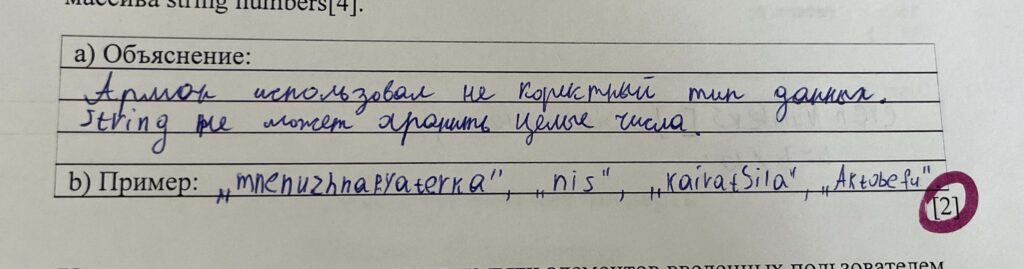 массива string numbers[4].
a) Объяснение:
Арман использовал не коректный тип данных.
String не может хранить целые числа.
b) Пример: „mnenuzhnapyaterka", „nis", „kairatSila", „Aktobefu"
[2]
элементов введенных пользователем